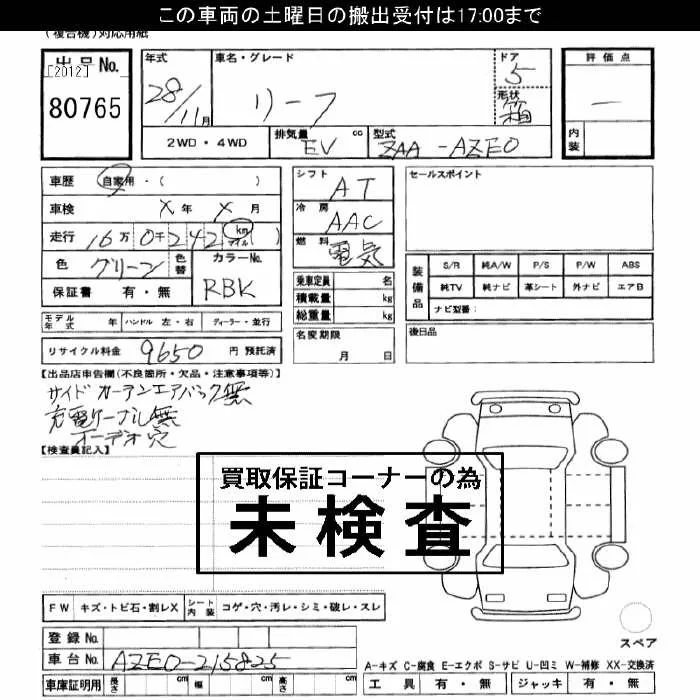 この車両の土曜日の搬出受付は17:00まで
(複合機)対応用紙
出品No.
[2012]
80765
年式
28/11月
車名・グレード
リーフ
ドア
5
形状
箱
2WD・4WD
排気量
EV
cc
型式
ZAA-AZE0
評価点
—
内装
車歴 自家用・( )
車検 X年 X月
走行 16万0千242 km マイル ( )
色 グリーン
色替
カラーNo.
RBK
保証書 有・無
モデル年式 年 ハンドル 左・右 ディーラー・並行
リサイクル料金 9650 円 預託済
シフト
AT
冷房
AAC
燃料
電気
乗車定員 名
積載量 kg
総重量 kg
名変期限
月 日
セールスポイント
装備品
S/R 純A/W P/S P/W ABS
純TV 純ナビ 革シート 外ナビ エアB
ナビ型番:
後日品
【出品店申告欄(不良箇所・欠品・注意事項等)】
サイドカーテンエアバック無
充電ケーブル無
オーデオ穴
【検査員記入】
買取保証コーナーの為
未検査
FW キズ・トビ石・割レX シート内装 コゲ・穴・汚レ・シミ・破レ・スレ
登録No.
車台No. AZE0-215825
車庫証明用 長さ cm 幅 cm cm
スペア
A-キズ C-腐食 E-エクボ S-サビ U-凹ミ W-補修 XX-交換済
工具 有・無 ジャッキ 有・無